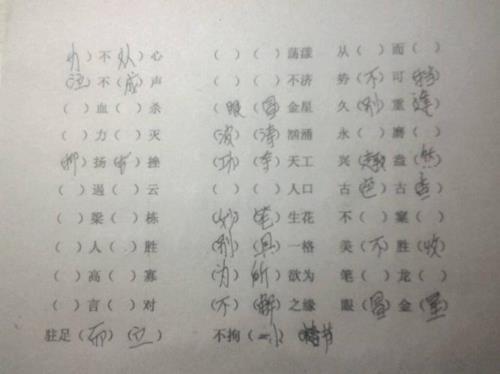 （力）不（从）心 （ ）（ ）荡漾 从（ ）而（ ）
（泣）不（成）声 （ ）（ ）不济 势（不）可（挡）
（ ）血（ ）杀 （眼）（冒）金星 久（别）重（逢）
（ ）力（ ）灭 （波）（涛）汹涌 永（ ）磨（ ）
（抑）扬（ ）挫 （巧）（夺）天工 兴（趣）盎（然）
（ ）遏（ ）云 （ ）（ ）人口 古（色）古（香）
（ ）梁（ ）栋 （妙）（笔）生花 不（ ）窠（ ）
（ ）人（ ）胜 （别）（具）一格 美（不）胜（收）
（ ）高（ ）寡 （为）（所）欲为 笔（ ）龙（ ）
（ ）言（ ）对 （不）（解）之缘 眼（冒）金（星）
驻足（而）（立） 不拘（小）（节）